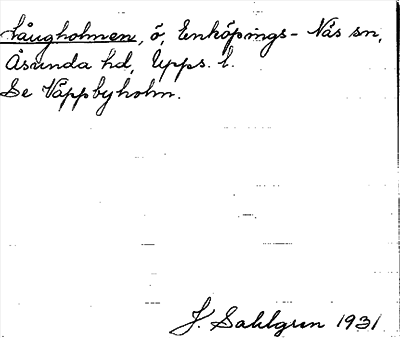 Långholmen, ö, Enköpings-Näs sn,
Åsunda hd, Upps. l.
Se Väppbyholm.
J. Sahlgren 1931